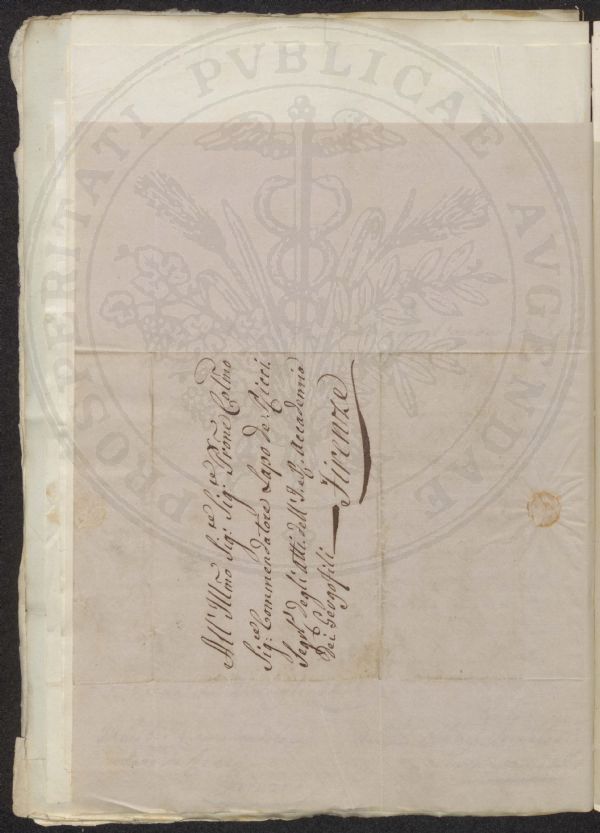 All' Illmo Sig:re Sig:re Prone Colmo
Sig:re Commendatore Lapo de' Ricci
Segrio degli Atti dell' I. e R. Accademia
dei Georgofili
Firenze
PROSPERITATI PVBLICAE AVGENDAE